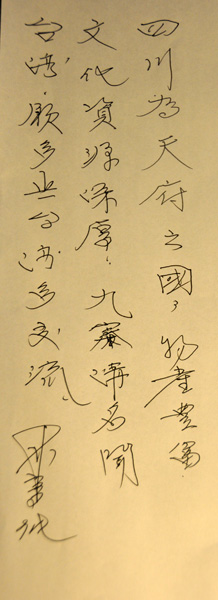 四川為天府之國,物產豐富
文化資源深厚,九寨溝名聞
台灣,願多與台灣多交流